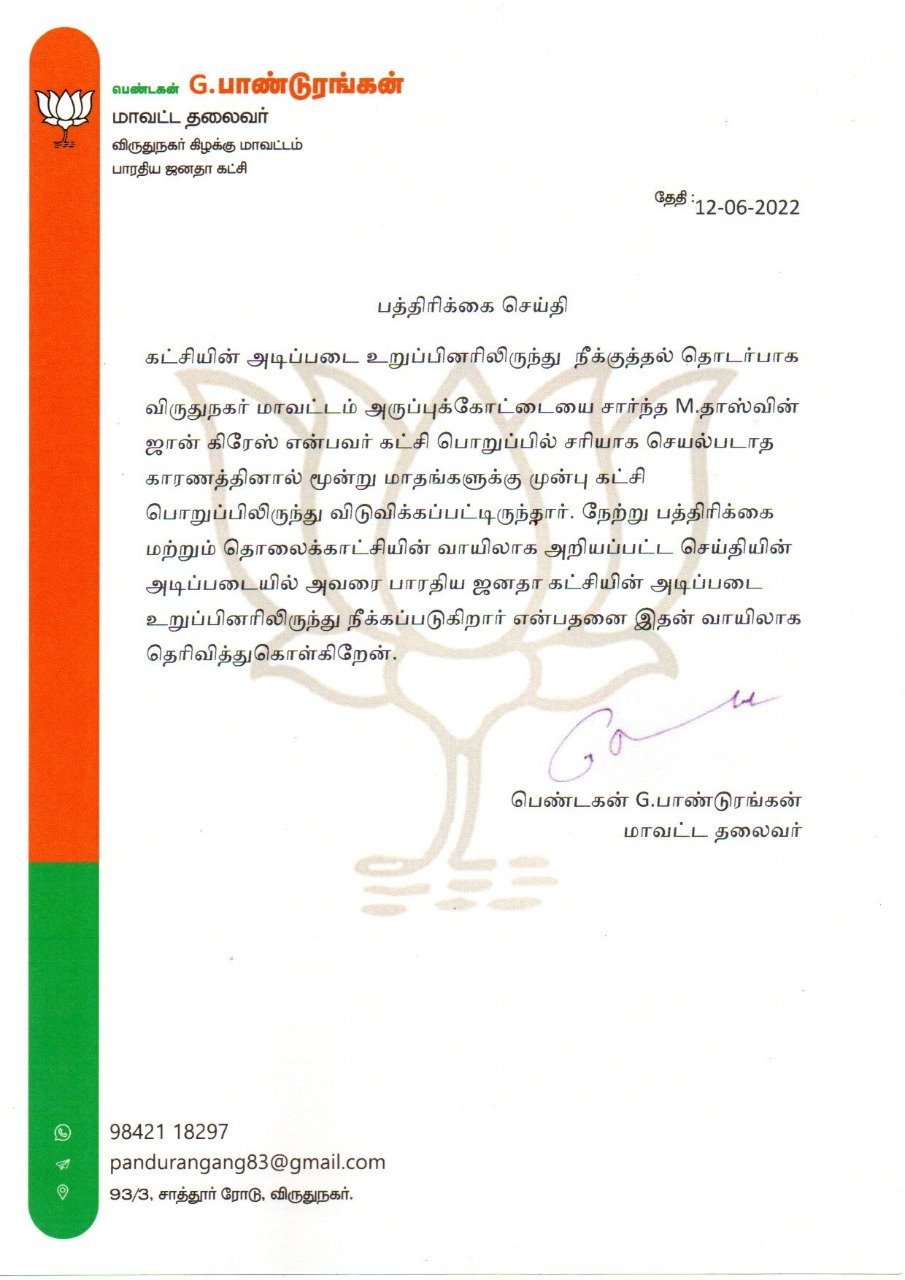 பெண்டகன் G.பாண்டுரங்கன்
மாவட்ட தலைவர்
விருதுநகர் கிழக்கு மாவட்டம்
பாரதிய ஜனதா கட்சி
தேதி :12-06-2022
பத்திரிக்கை செய்தி
கட்சியின் அடிப்படை உறுப்பினரிலிருந்து நீக்குத்தல் தொடர்பாக
விருதுநகர் மாவட்டம் அருப்புக்கோட்டையை சார்ந்த M.தாஸ்வின்
ஜான் கிரேஸ் என்பவர் கட்சி பொறுப்பில் சரியாக செயல்படாத
காரணத்தினால் மூன்று மாதங்களுக்கு முன்பு கட்சி
பொறுப்பிலிருந்து விடுவிக்கப்பட்டிருந்தார். நேற்று பத்திரிக்கை
மற்றும் தொலைக்காட்சியின் வாயிலாக அறியப்பட்ட செய்தியின்
அடிப்படையில் அவரை பாரதிய ஜனதா கட்சியின் அடிப்படை
உறுப்பினரிலிருந்து நீக்கப்படுகிறார் என்பதனை இதன் வாயிலாக
தெரிவித்துகொள்கிறேன்.
பெண்டகன் G.பாண்டுரங்கன்
மாவட்ட தலைவர்
98421 18297
pandurangang83@gmail.com
93/3, சாத்தூர் ரோடு, விருதுநகர்.